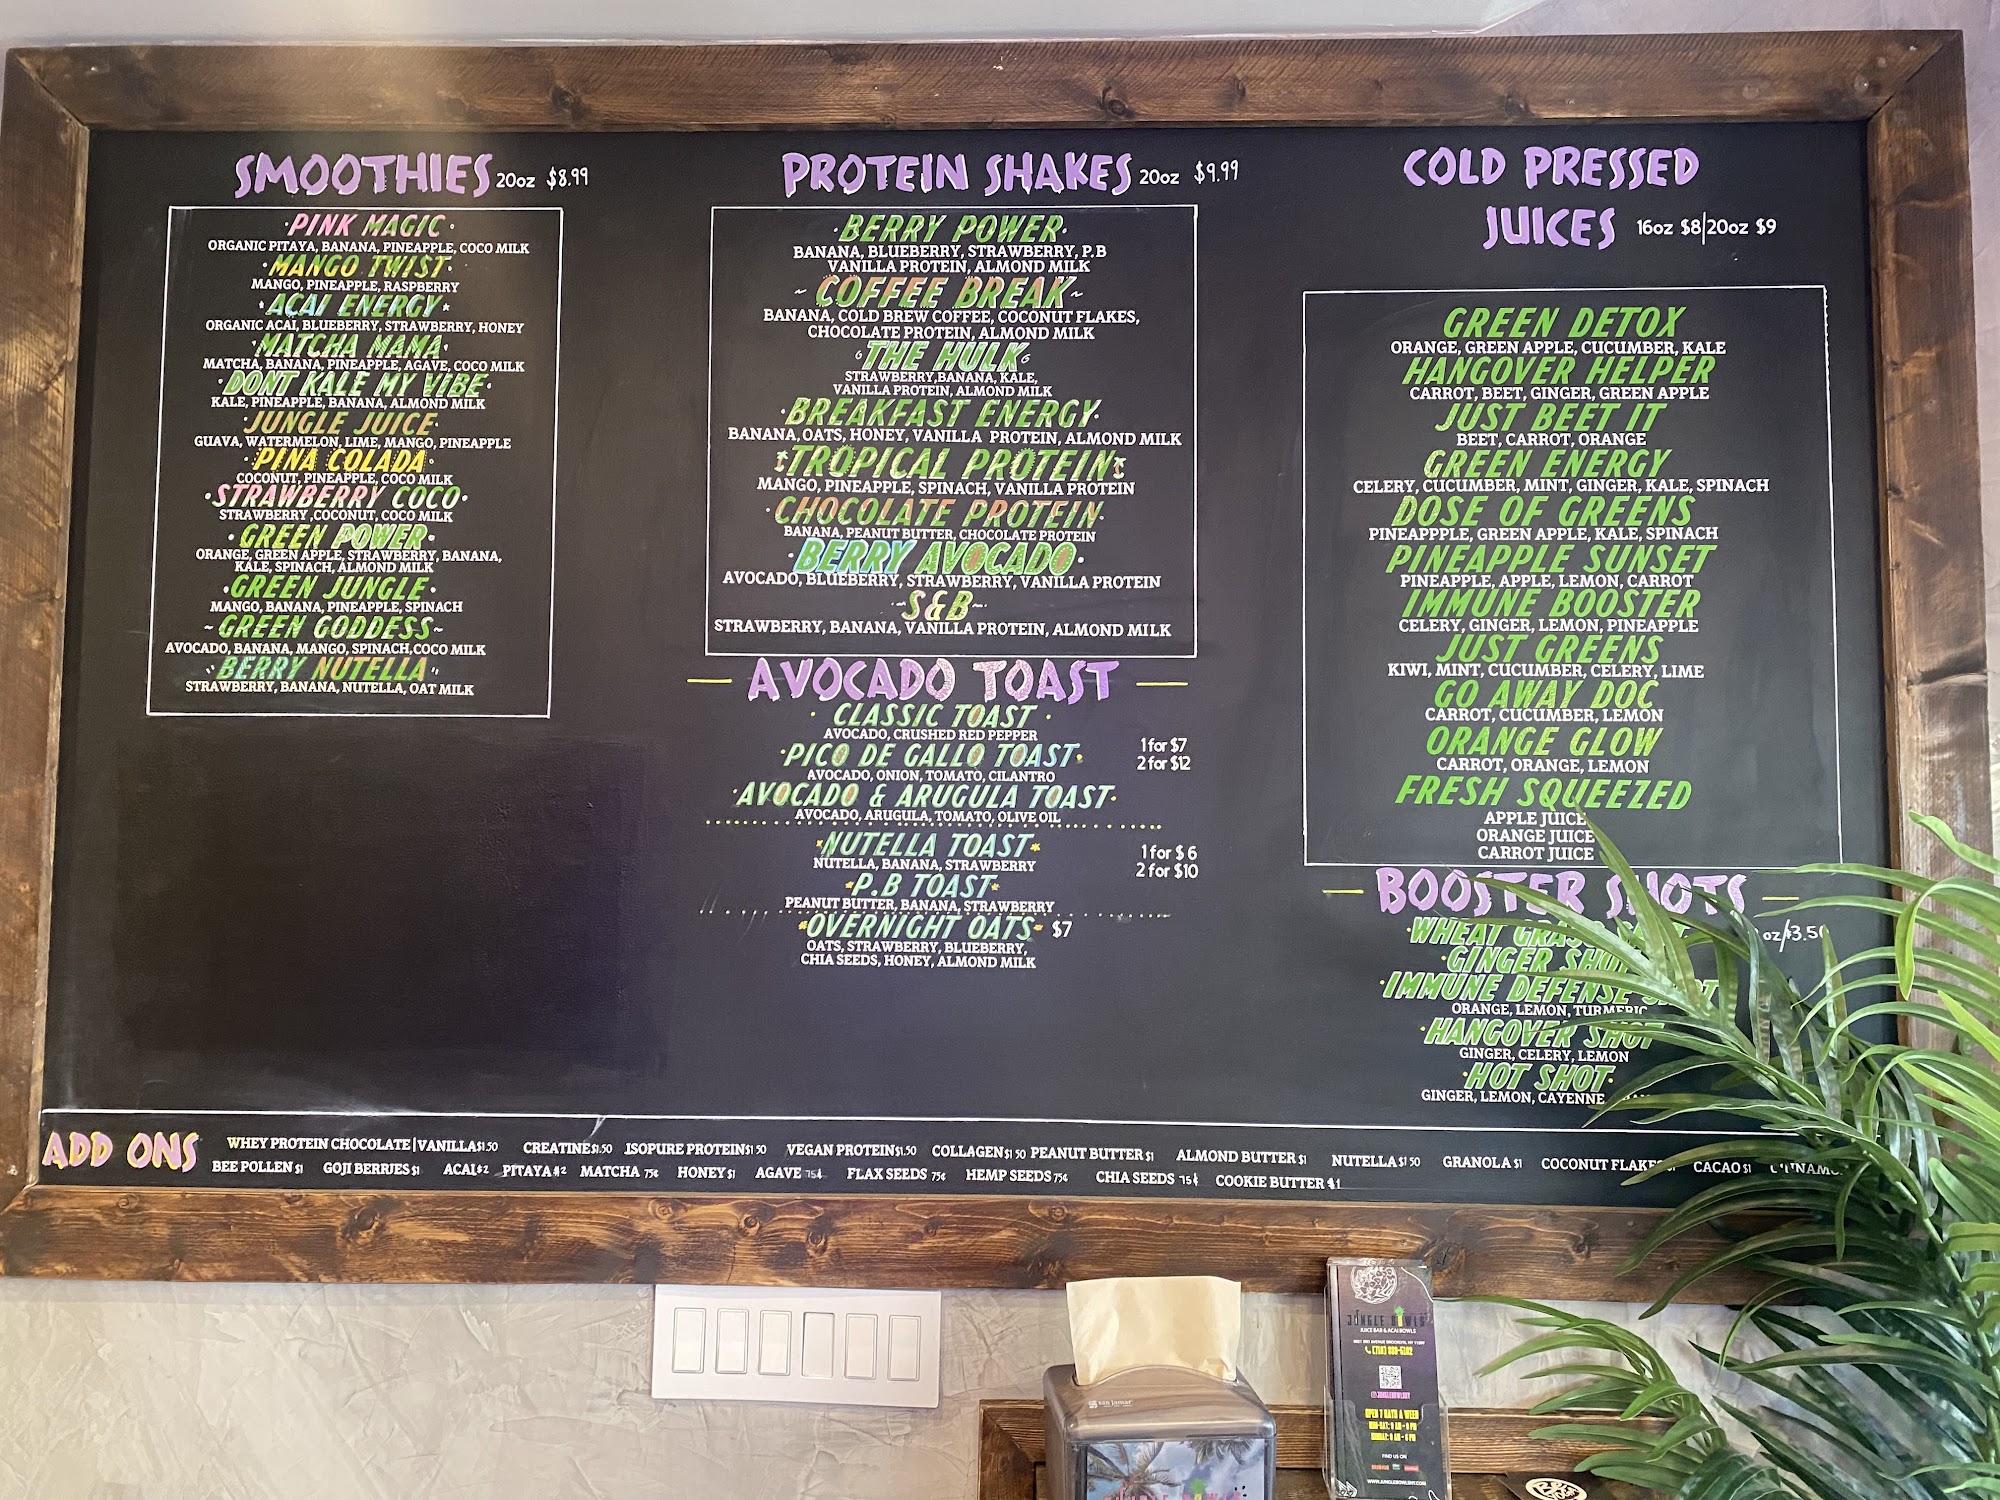 SMOOTHIES 20oz $8.99
PINK MAGIC
ORGANIC PITAYA, BANANA, PINEAPPLE, COCO MILK
MANGO TWIST
MANGO, PINEAPPLE, RASPBERRY
ACAI ENERGY
ORGANIC ACAI, BLUEBERRY, STRAWBERRY, HONEY
MATCHA MAMA
MATCHA, BANANA, PINEAPPLE, AGAVE, COCO MILK
DONT KALE MY VIBE
KALE, PINEAPPLE, BANANA, ALMOND MILK
JUNGLE JUICE
GUAVA, WATERMELON, LIME, MANGO, PINEAPPLE
PINA COLADA
COCONUT, PINEAPPLE, COCO MILK
STRAWBERRY COCO
STRAWBERRY ,COCONUT, COCO MILK
GREEN POWER
ORANGE, GREEN APPLE, STRAWBERRY, BANANA,
KALE, SPINACH, ALMOND MILK
GREEN JUNGLE
MANGO, BANANA, PINEAPPLE, SPINACH
GREEN GODDESS
AVOCADO, BANANA, MANGO, SPINACH,COCO MILK
BERRY NUTELLA
STRAWBERRY, BANANA, NUTELLA, OAT MILK
PROTEIN SHAKES 20oz $9.99
BERRY POWER
BANANA, BLUEBERRY, STRAWBERRY, P.B
VANILLA PROTEIN, ALMOND MILK
COFFEE BREAK
BANANA, COLD BREW COFFEE, COCONUT FLAKES,
CHOCOLATE PROTEIN, ALMOND MILK
THE HULK
STRAWBERRY,BANANA, KALE,
VANILLA PROTEIN, ALMOND MILK
BREAKFAST ENERGY
BANANA, OATS, HONEY, VANILLA PROTEIN, ALMOND MILK
TROPICAL PROTEIN
MANGO, PINEAPPLE, SPINACH, VANILLA PROTEIN
CHOCOLATE PROTEIN
BANANA, PEANUT BUTTER, CHOCOLATE PROTEIN
BERRY AVOCADO
AVOCADO, BLUEBERRY, STRAWBERRY, VANILLA PROTEIN
S&B
STRAWBERRY, BANANA, VANILLA PROTEIN, ALMOND MILK
AVOCADO TOAST
CLASSIC TOAST
AVOCADO, CRUSHED RED PEPPER
PICO DE GALLO TOAST
AVOCADO, ONION, TOMATO, CILANTRO
AVOCADO & ARUGULA TOAST
AVOCADO, ARUGULA, TOMATO, OLIVE OIL
1 for $7
2 for $12
NUTELLA TOAST
NUTELLA, BANANA, STRAWBERRY
P.B TOAST
PEANUT BUTTER, BANANA, STRAWBERRY
1 for $6
2 for $10
OVERNIGHT OATS $7
OATS, STRAWBERRY, BLUEBERRY,
CHIA SEEDS, HONEY, ALMOND MILK
COLD PRESSED
JUICES 16oz $8|20oz $9
GREEN DETOX
ORANGE, GREEN APPLE, CUCUMBER, KALE
HANGOVER HELPER
CARROT, BEET, GINGER, GREEN APPLE
JUST BEET IT
BEET, CARROT, ORANGE
GREEN ENERGY
CELERY, CUCUMBER, MINT, GINGER, KALE, SPINACH
DOSE OF GREENS
PINEAPPPLE, GREEN APPLE, KALE, SPINACH
PINEAPPLE SUNSET
PINEAPPLE, APPLE, LEMON, CARROT
IMMUNE BOOSTER
CELERY, GINGER, LEMON, PINEAPPLE
JUST GREENS
KIWI, MINT, CUCUMBER, CELERY, LIME
GO AWAY DOC
CARROT, CUCUMBER, LEMON
ORANGE GLOW
CARROT, ORANGE, LEMON
FRESH SQUEEZED
APPLE JUICE
ORANGE JUICE
CARROT JUICE
BOOSTER SHOTS
WHEAT GRASS SHOT oz/$3.50
GINGER SHOT
IMMUNE DEFENSE SHOT
ORANGE, LEMON, TURMERIC
HANGOVER SHOT
GINGER, CELERY, LEMON
HOT SHOT
GINGER, LEMON, CAYENNE
ADD ONS
WHEY PROTEIN CHOCOLATE|VANILLA $1.50 CREATINE $1.50 ISOPURE PROTEIN $1.50 VEGAN PROTEIN $1.50 COLLAGEN $1.50 PEANUT BUTTER $1 ALMOND BUTTER $1 NUTELLA $1.50 GRANOLA $1 COCONUT FLAKES CACAO $1
BEE POLLEN $1 GOJI BERRIES $1 ACAI $2 PITAYA $2 MATCHA 75¢ HONEY $1 AGAVE 75¢ FLAX SEEDS 75¢ HEMP SEEDS 75¢ CHIA SEEDS 75¢ COOKIE BUTTER $1
san jamar
JUNGLE BOWLS
JUICE BAR & ACAI BOWLS
OPEN 7 DAYS A WEEK
FIND US ON
WWW.JUNGLEBOWLSNY.COM